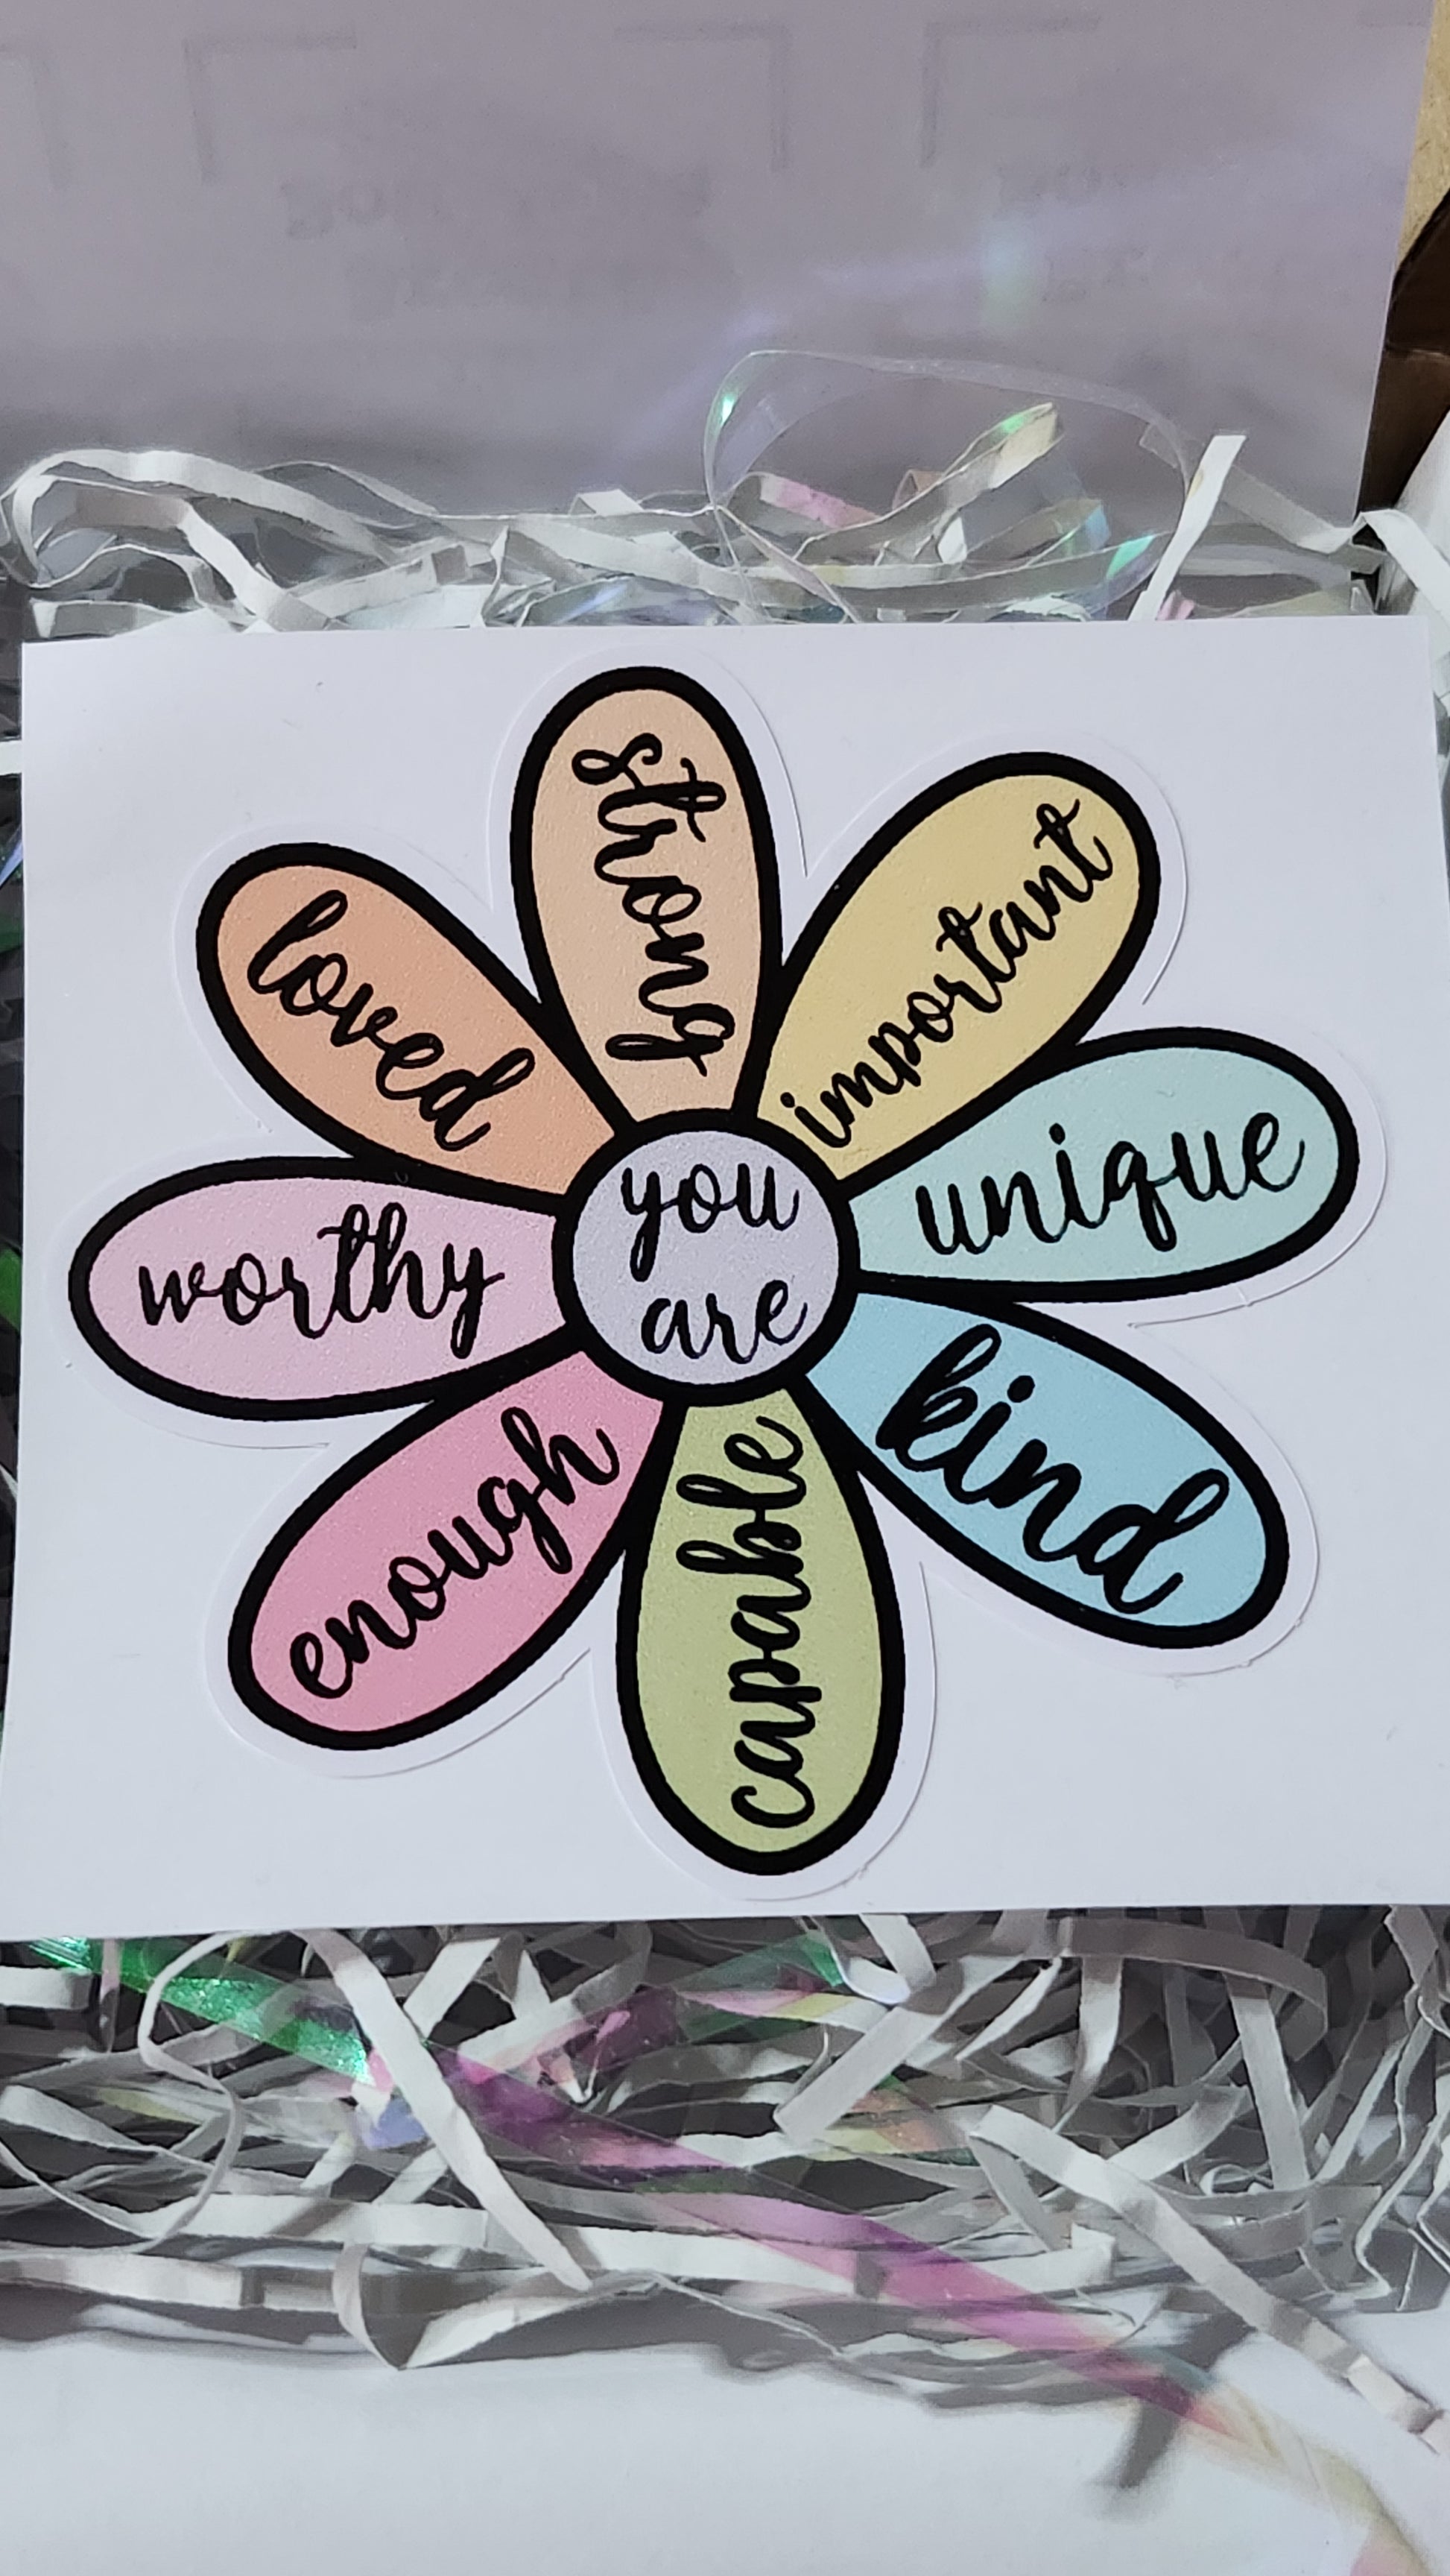 you
are
strong
important
unique
kind
capable
enough
worthy
loved